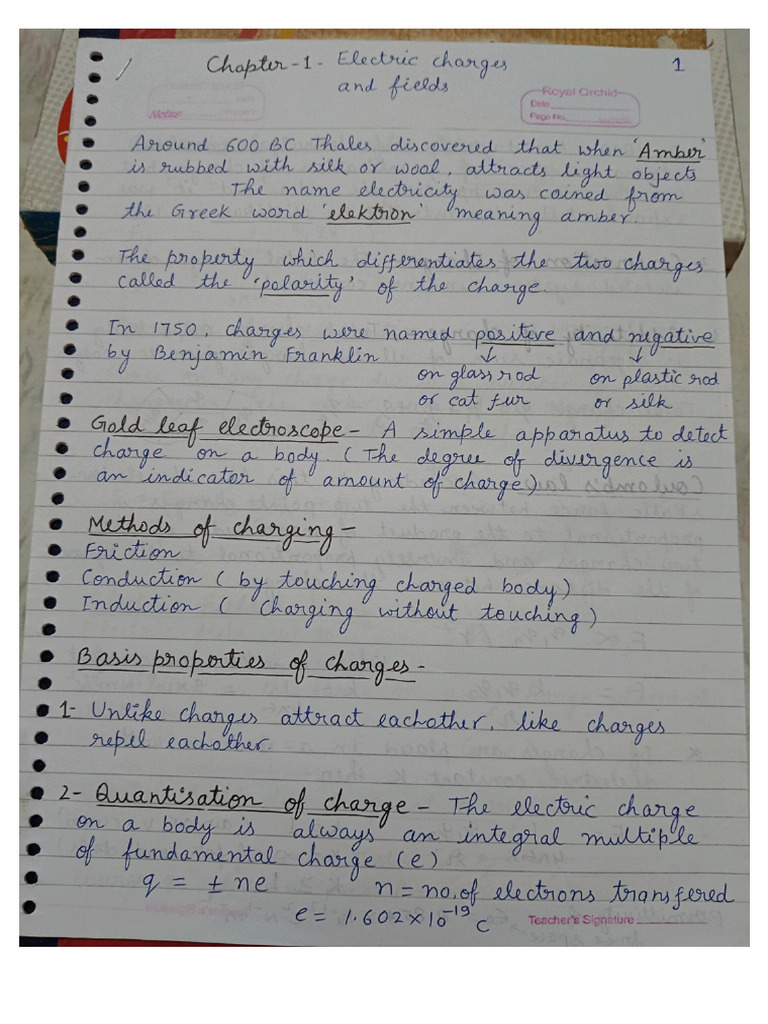 Chapter-1- Electric charges
and fields
1
Notes
Royal Orchid
Date
Page No.
Around 600 BC Thales discovered that when 'Amber'
is rubbed with silk or wool, attracts light objects
The name electricity was coined from
the Greek word 'elektron' meaning amber.
The property which differentiates the two charges
called the 'polarity' of the charge.
In 1750, charges were named positive and negative
by Benjamin Franklin
↓ ↓
on glass rod on plastic rod
or cat fur or silk
Gold leaf electroscope - A simple apparatus to detect
charge on a body. (The degree of divergence is
an indicator of amount of charge)
Methods of charging -
Friction
Conduction ( by touching charged body)
Induction ( Charging without touching)
Basis properties of charges -
1- Unlike charges attract eachother, like charges
repel eachother.
2- Quantisation of charge - The electric charge
on a body is always an integral multiple
of fundamental charge (e)
q = ± ne n = no. of electrons transfered
e = 1.602 × 10⁻¹⁹ C
Teacher's Signature